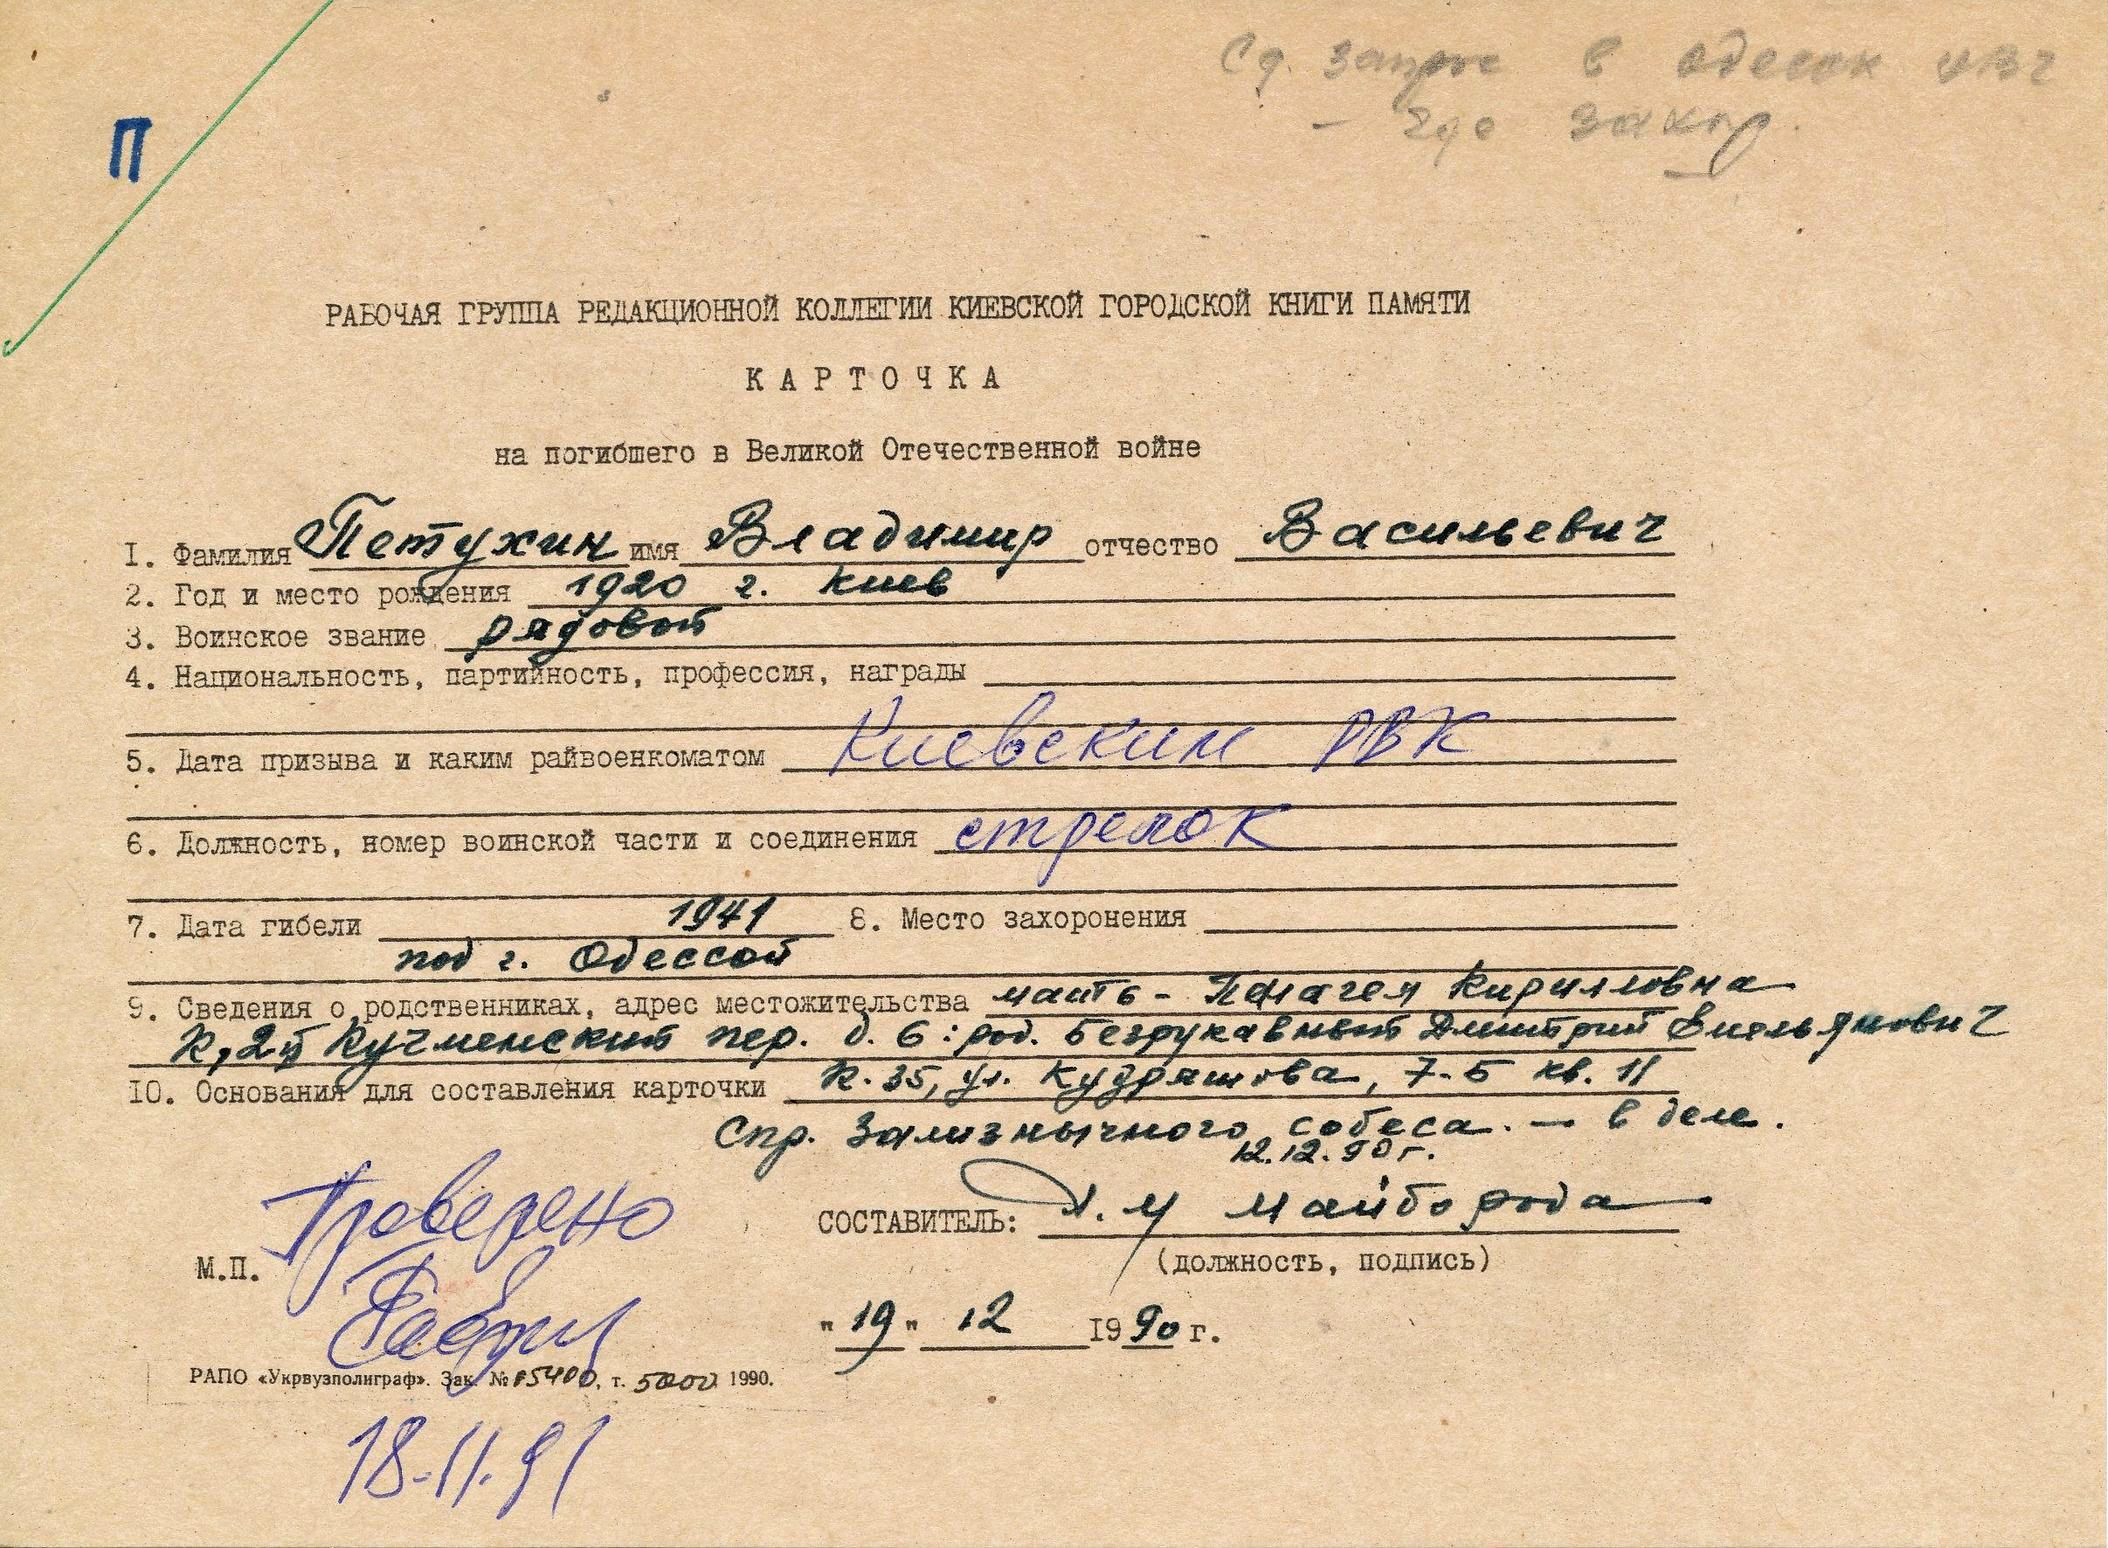 Сд. запрос в Одесск
- где захор.
П
РАБОЧАЯ ГРУППА РЕДАКЦИОННОЙ КОЛЛЕГИИ КИЕВСКОЙ ГОРОДСКОЙ КНИГИ ПАМЯТИ
КАРТОЧКА
на погибшего в Великой Отечественной войне
I. Фамилия Петухин имя Владимир отчество Васильевич
2. Год и место рождения 1920 г. Киев
3. Воинское звание рядовой
4. Национальность, партийность, профессия, награды
5. Дата призыва и каким райвоенкоматом Киевским РВК
6. Должность, номер воинской части и соединения стрелок
7. Дата гибели 1941 8. Место захоронения
под г. Одессой
9. Сведения о родственниках, адрес местожительства мать - Пелагея Кирилловна
К, 2й Кучменский пер. д. 6: род. Безрукавный Дмитрий Емельянович
10. Основания для составления карточки К. 35, ул. Кудряшова, 7-Б кв. 11
Спр. Зализнычного собеса. - в деле.
12.12.90г.
Проверено
СОСТАВИТЕЛЬ: Майборода
М.П.
(должность, подпись)
"19" 12 1990 г.
РАПО «Укрвузполиграф». Зак. № 05400, т. 5000 1990.
18.11.91